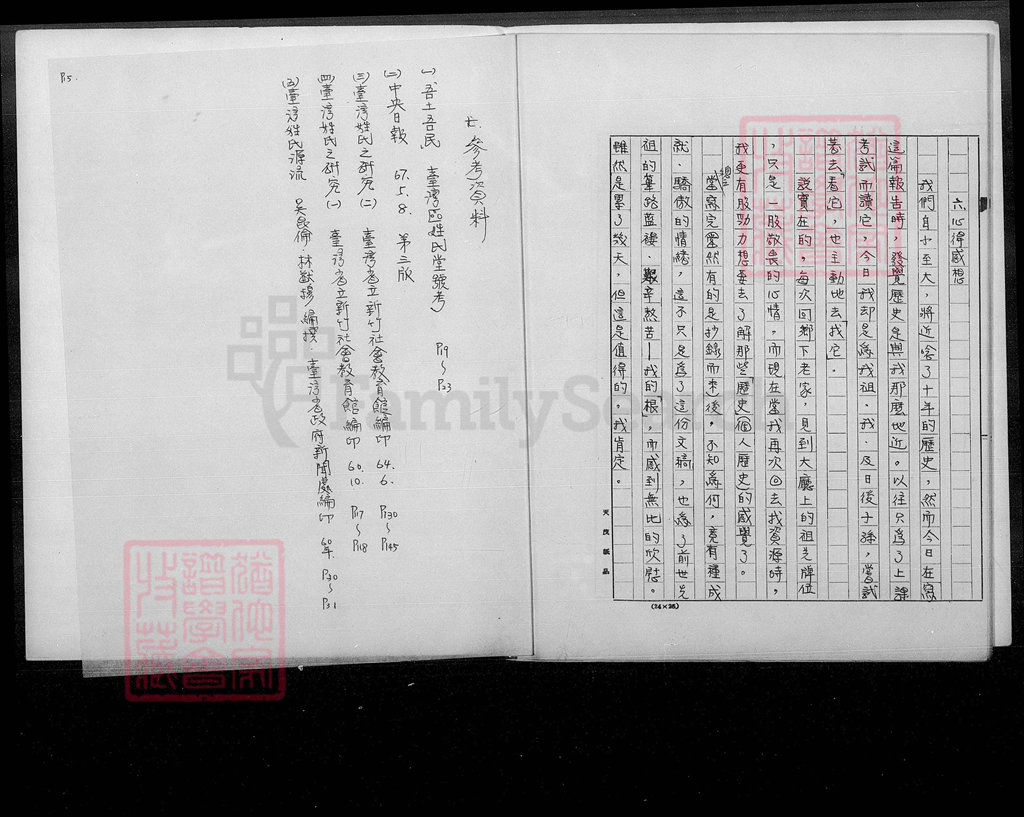 六、心得感想
我們自小至大，將近唸了十年的歷史，然而今日在寫
這篇報告時，發覺歷史是與我那麼地近。以往只為了上課
考試而讀它，今日我却是為我祖、我、及日後子孫，嘗試
著去「看它」，也主動地去「找它」．
說實在的，每次回鄉下老家，見到大廳上的祖先牌位
，只是一股敬畏的心情，而現在當我再次回去找資源時，
我更有股動力想要去了解那些「歷史」個人歷史的感覺了。
當寫完
然有的是抄錄而來後，不知為何，竟有種成
就．驕傲的情緒，這不只是為了這份文稿，也為了前世先
祖的篳路藍褸．艱辛熬苦—我的「根」，而感到無比的欣慰。
雖然是累了幾天，但這是值得的。我肯定。
天茂紙品
(24×25)
七、參考資料
(一)吾土吾民 臺灣區姓氏堂號考 P19～P23
(二)中央日報 67. 5. 8. 第三版
(三)臺灣姓氏之研究(二) 臺灣省立新竹社會教育館編印 64. 6. P130～P145
(四)臺灣姓氏之研究(一) 臺灣省立新竹社會教育館編印 60. 10. P17～P18
(五)臺灣姓氏源流 吳昆倫．林猷穆編撰．臺灣省政府新聞處編印 60年. P30～P31
P15.
FamilySearch